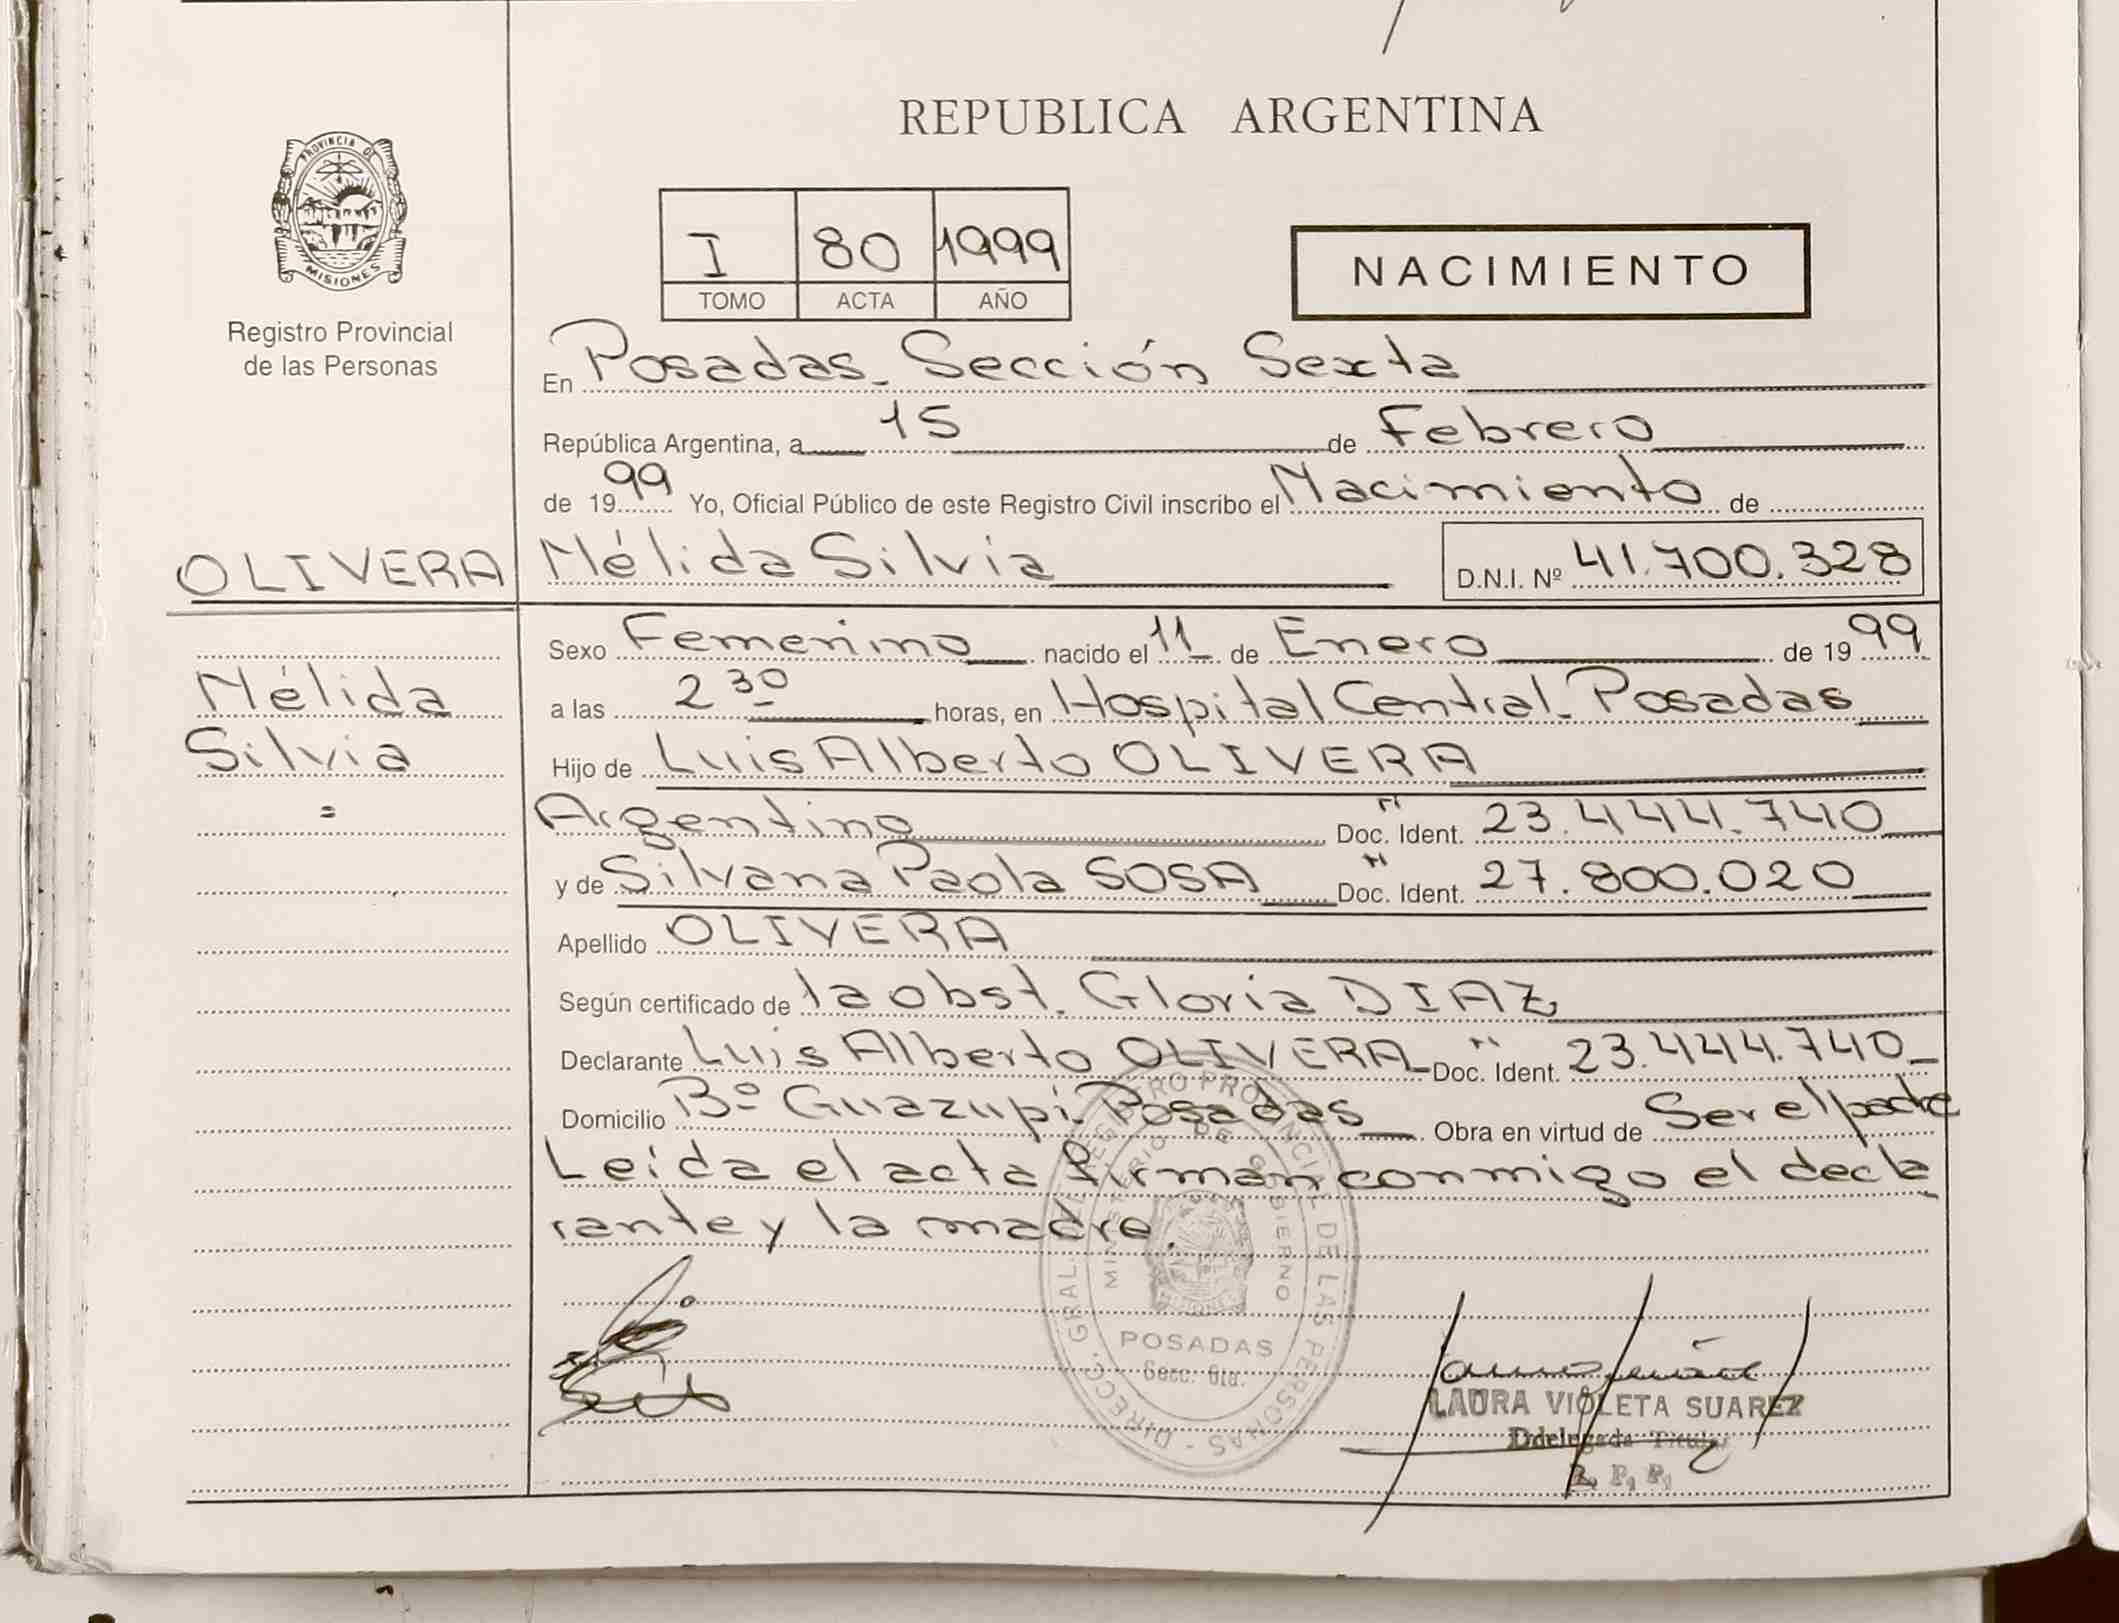 REPUBLICA ARGENTINA
PROVINCIA DE
MISIONES
Registro Provincial
de las Personas
I 80 1999
TOMO ACTA AÑO
NACIMIENTO
En Posadas. Sección Sexta
República Argentina, a 15 de Febrero
de 1999 Yo, Oficial Público de este Registro Civil inscribo el Nacimiento de
OLIVERA
Nélida Silvia D.N.I. Nº 41.700.328
Nélida
Silvia
=
Sexo Femenino nacido el 11 de Enero de 1999
a las 2 30 horas, en Hospital Central. Posadas
Hijo de Luis Alberto OLIVERA
Argentino Doc. Ident. N 23.444.740
y de Silvana Paola SOSA Doc. Ident. N 27.800.020
Apellido OLIVERA
Según certificado de la obst. Gloria DIAZ
Declarante Luis Alberto OLIVERA Doc. Ident. N 23.444.740
Domicilio Bº Guazupí. Posadas Obra en virtud de Ser el padre
Leída el acta firman conmigo el decla
rante y la madre.
DIRECC. GRAL. DEL REGISTRO PROVINCIAL DE LAS PERSONAS
MINISTERIO DE GOBIERNO
POSADAS
Secc. 6ta.
LAURA VIOLETA SUAREZ
Delegada Titular
R. P. P.